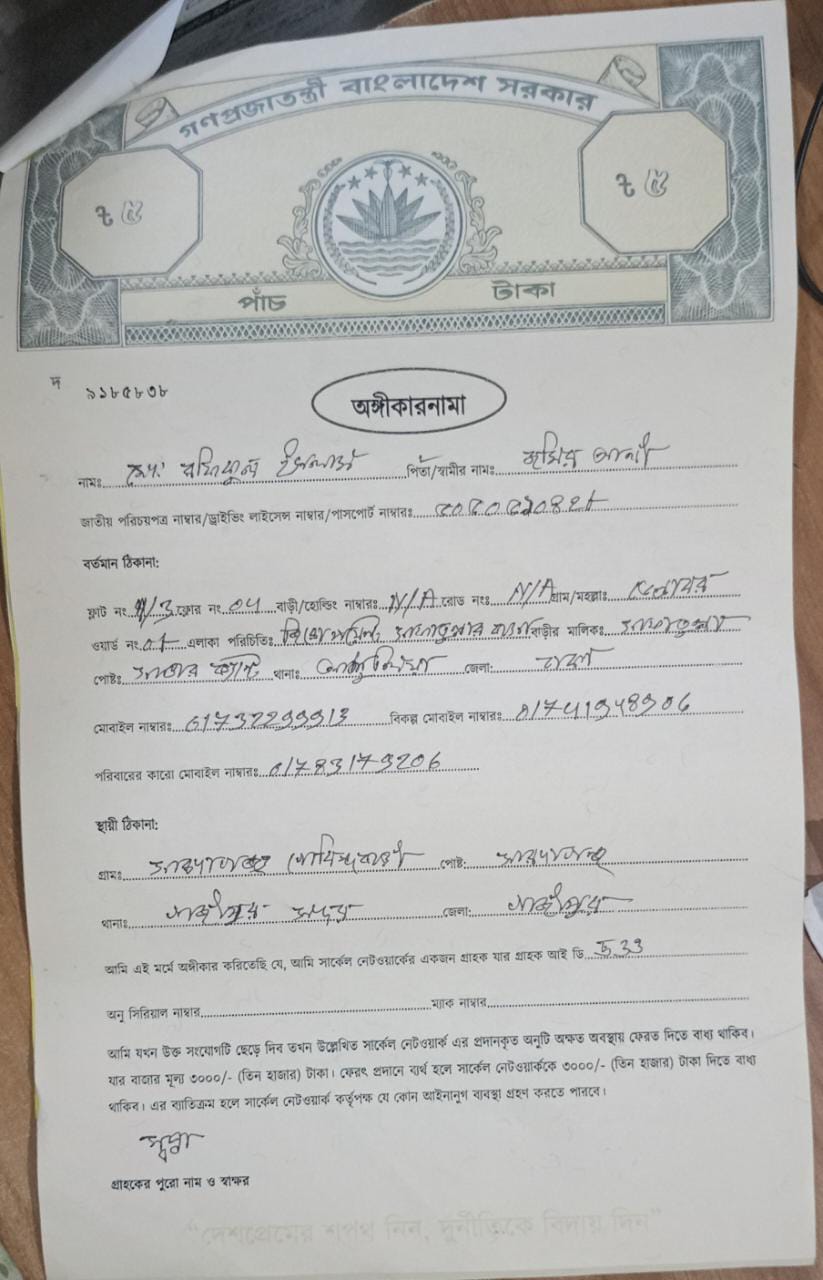 গণপ্রজাতন্ত্রী বাংলাদেশ সরকার
৳ ৫ ৳ ৫
পাঁচ টাকা
দ ৯১৮৫৮৩৮
অঙ্গীকারনামা
নামঃ মোঃ রফিকুল ইসলাম পিতা/স্বামীর নামঃ আলী
জাতীয় পরিচয়পত্র নাম্বার/ড্রাইভিং লাইসেন্স নাম্বার/পাসপোর্ট নাম্বারঃ
বর্তমান ঠিকানা:
ফ্লাট নং ফ্লোর নং 04 বাড়ী/হোল্ডিং নাম্বারঃ N/A রোড নংঃ N/A গ্রাম/মহল্লাঃ
ওয়ার্ড নং এলাকা পরিচিতিঃ বাড়ীর মালিকঃ
পোষ্টঃ সাভার ক্যান্ট থানাঃ আশুলিয়া জেলা: ঢাকা
মোবাইল নাম্বারঃ 01732299913 বিকল্প মোবাইল নাম্বারঃ 01741948906
পরিবারের কারো মোবাইল নাম্বারঃ 01783179206
স্থায়ী ঠিকানা:
গ্রামঃ পোষ্ট:
থানাঃ গাজীপুর সদর জেলা: গাজীপুর
আমি এই মর্মে অঙ্গীকার করিতেছি যে, আমি সার্কেল নেটওয়ার্কের একজন গ্রাহক যার গ্রাহক আই ডি
অনু সিরিয়াল নাম্বার ম্যাক নাম্বার
আমি যখন উক্ত সংযোগটি ছেড়ে দিব তখন উল্লেখিত সার্কেল নেটওয়ার্ক এর প্রদানকৃত অনুটি অক্ষত অবস্থায় ফেরত দিতে বাধ্য থাকিব।
যার বাজার মূল্য ৩০০০/- (তিন হাজার) টাকা। ফেরৎ প্রদানে ব্যর্থ হলে সার্কেল নেটওয়ার্ককে ৩০০০/- (তিন হাজার) টাকা দিতে বাধ্য
থাকিব। এর ব্যতিক্রম হলে সার্কেল নেটওয়ার্ক কর্তৃপক্ষ যে কোন আইনানুগ ব্যবস্থা গ্রহণ করতে পারবে।
গ্রাহকের পুরো নাম ও স্বাক্ষর
“দেশপ্রেমের শপথ নিন, দুর্নীতিকে বিদায় দিন”